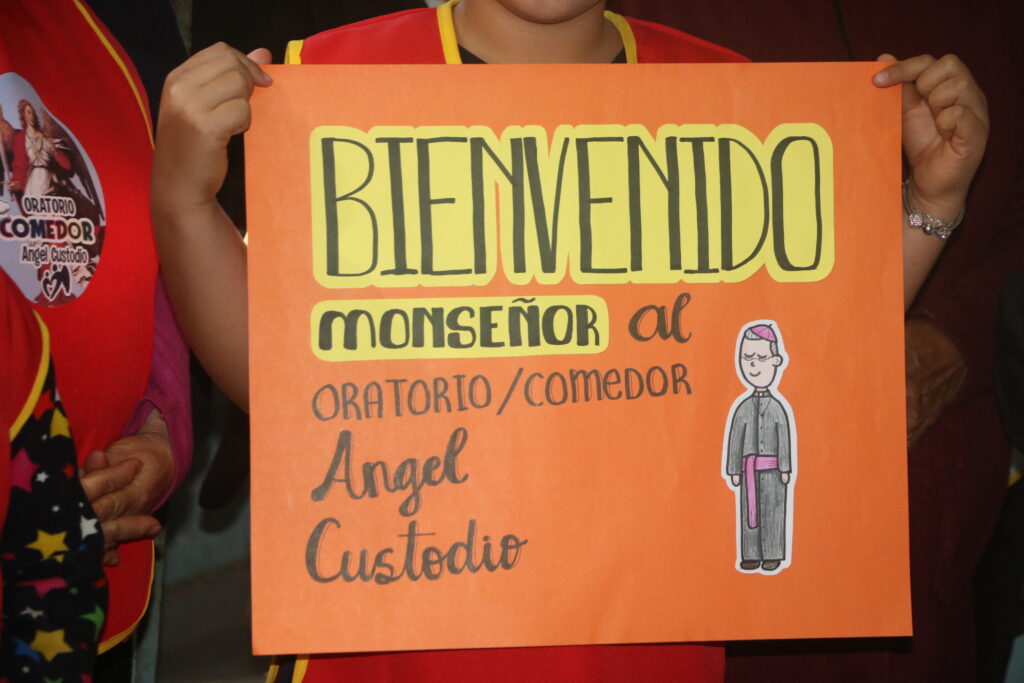 ORATORIO
COMEDOR
Angel Custodio
BIENVENIDO
MONSEÑOR al
ORATORIO/COMEDOR
Angel
Custodio